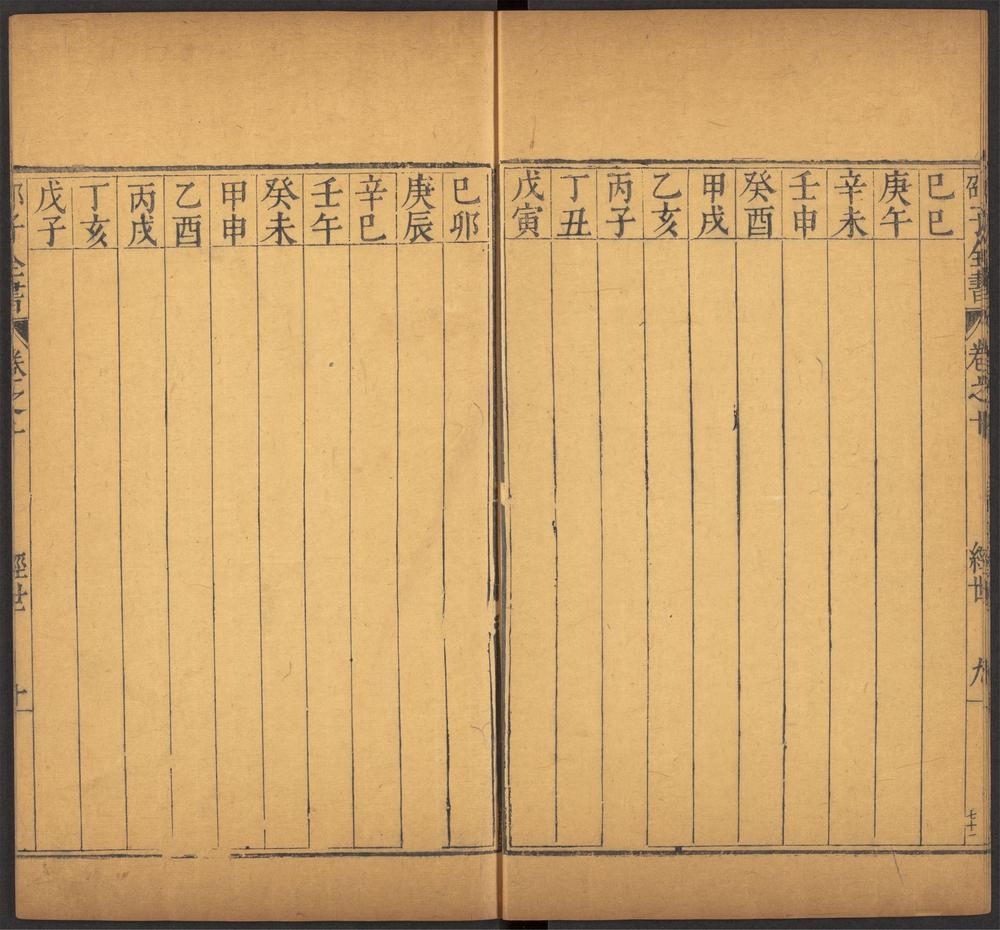 邵子全書 卷之 經世 九 七十一
己巳
庚午
辛未
壬申
癸酉
甲戌
乙亥
丙子
丁丑
戊寅
己卯
庚辰
辛巳
壬午
癸未
甲申
乙酉
丙戌
丁亥
戊子
子全書 卷之 經世